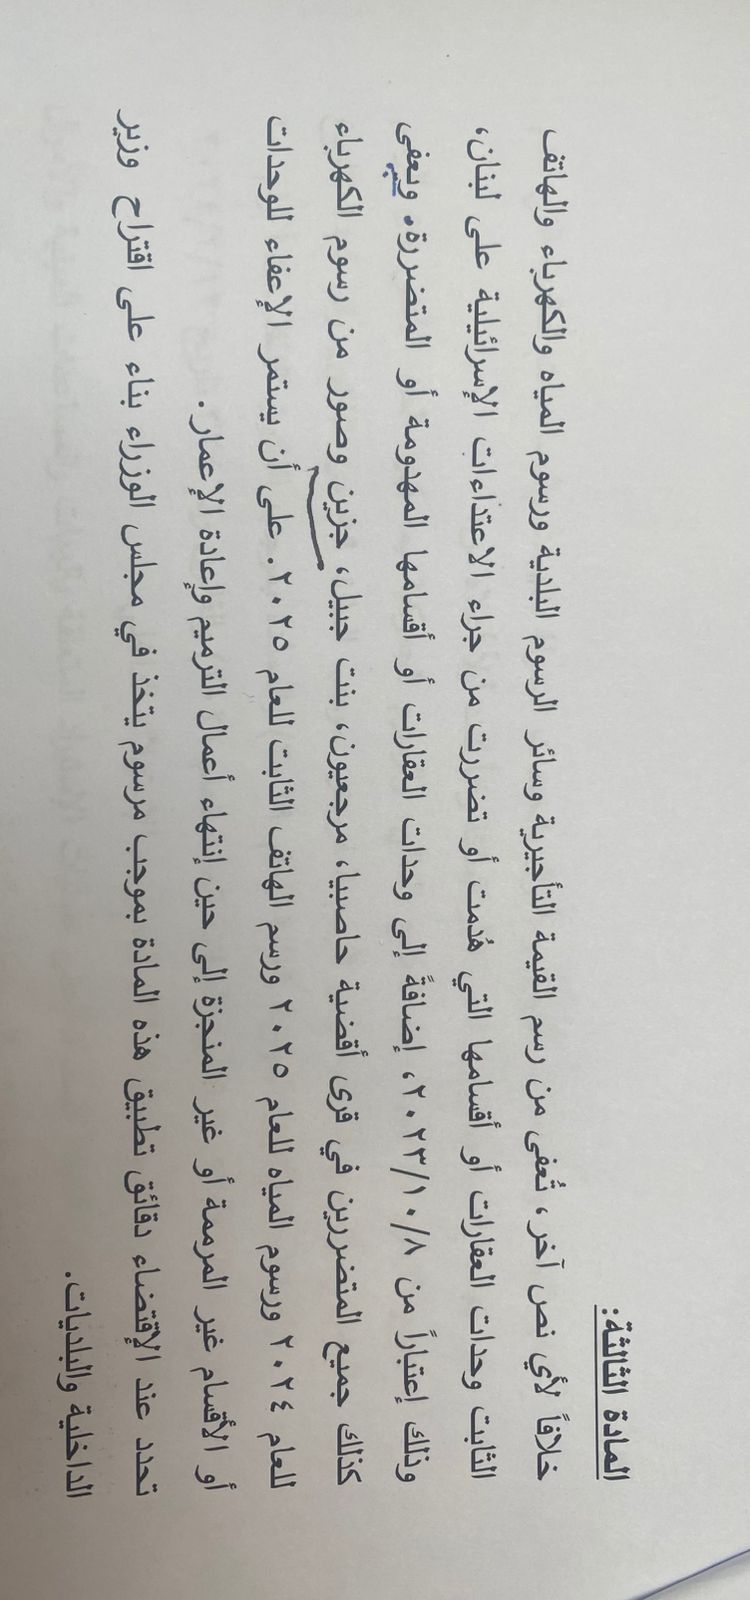 المادة الثالثة:
خلافاً لأي نص آخر، تُعفى من رسم القيمة التأجيرية وسائر الرسوم البلدية ورسوم المياه والكهرباء والهاتف
الثابت وحدات العقارات أو أقسامها التي هُدمت أو تضررت من جراء الاعتداءات الإسرائيلية على لبنان،
وذلك إعتباراً من ٢٠٢٣/١٠/٨، إضافةً إلى وحدات العقارات أو أقسامها المهدومة أو المتضررة. ويعفى
كذلك جميع المتضررين في قرى أقضية حاصبيا، مرجعيون، بنت جبيل، جزين وصور من رسوم الكهرباء
للعام ٢٠٢٤ ورسوم المياه للعام ٢٠٢٥ ورسم الهاتف الثابت للعام ٢٠٢٥. على أن يستمر الإعفاء للوحدات
أو الأقسام غير المرممة أو غير المنجزة إلى حين إنتهاء أعمال الترميم وإعادة الإعمار.
تحدد عند الإقتضاء دقائق تطبيق هذه المادة بموجب مرسوم يتخذ في مجلس الوزراء بناء على اقتراح وزير
الداخلية والبلديات.